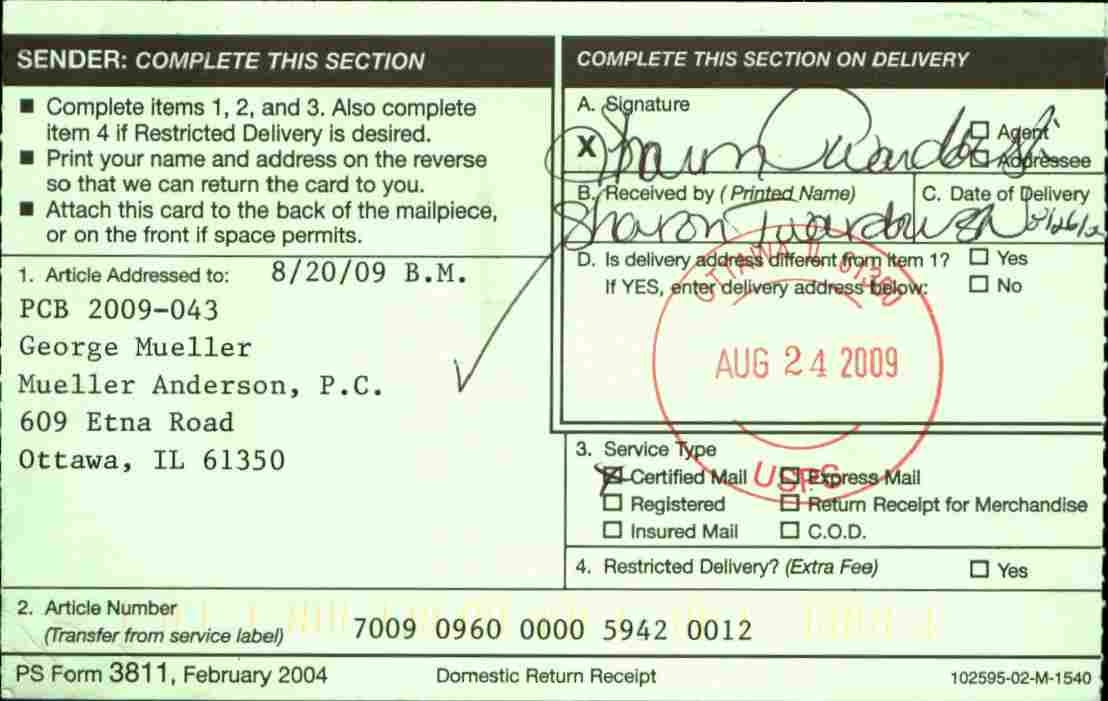 SENDER: COMPLETE THIS SECTION
■ Complete items 1, 2, and 3. Also complete
item 4 if Restricted Delivery is desired.
■ Print your name and address on the reverse
so that we can return the card to you.
■ Attach this card to the back of the mailpiece,
or on the front if space permits.
1. Article Addressed to: 8/20/09 B.M.
PCB 2009-043
George Mueller
Mueller Anderson, P.C.
609 Etna Road
Ottawa, IL 61350
2. Article Number
(Transfer from service label) 7009 0960 0000 5942 0012
PS Form 3811, February 2004
Domestic Return Receipt
102595-02-M-1540
COMPLETE THIS SECTION ON DELIVERY
A. Signature
X Sharon
□ Agent
□ Addressee
B. Received by (Printed Name)
Sharon
C. Date of Delivery
D. Is delivery address different from item 1? □ Yes
If YES, enter delivery address below: □ No
OTTAWA IL 61350
AUG 24 2009
USPS
3. Service Type
☒ Certified Mail □ Express Mail
□ Registered □ Return Receipt for Merchandise
□ Insured Mail □ C.O.D.
4. Restricted Delivery? (Extra Fee) □ Yes